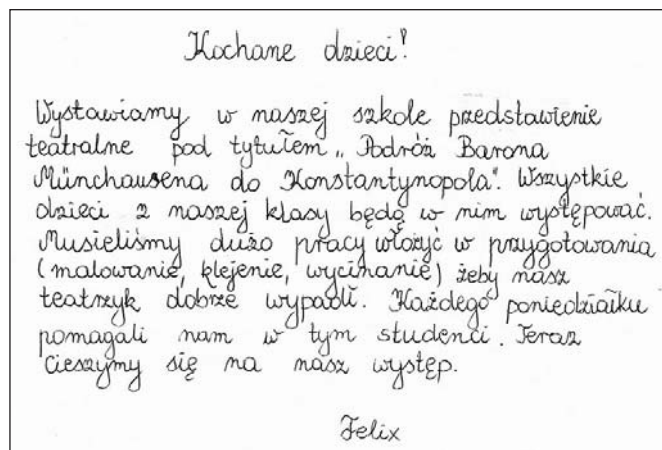 Kochane dzieci!
Wystawiamy w naszej szkole przedstawienie
teatralne pod tytułem „Podróż Barona
Münchausena do Konstantynopola". Wszystkie
dzieci z naszej klasy będą w nim występować.
Musieliśmy dużo pracy włożyć w przygotowania
(malowanie, klejenie, wycinanie) żeby nasz
teatrzyk dobrze wypadł. Każdego poniedziałku
pomagali nam w tym studenci. Teraz
cieszymy się na nasz występ.
Felix